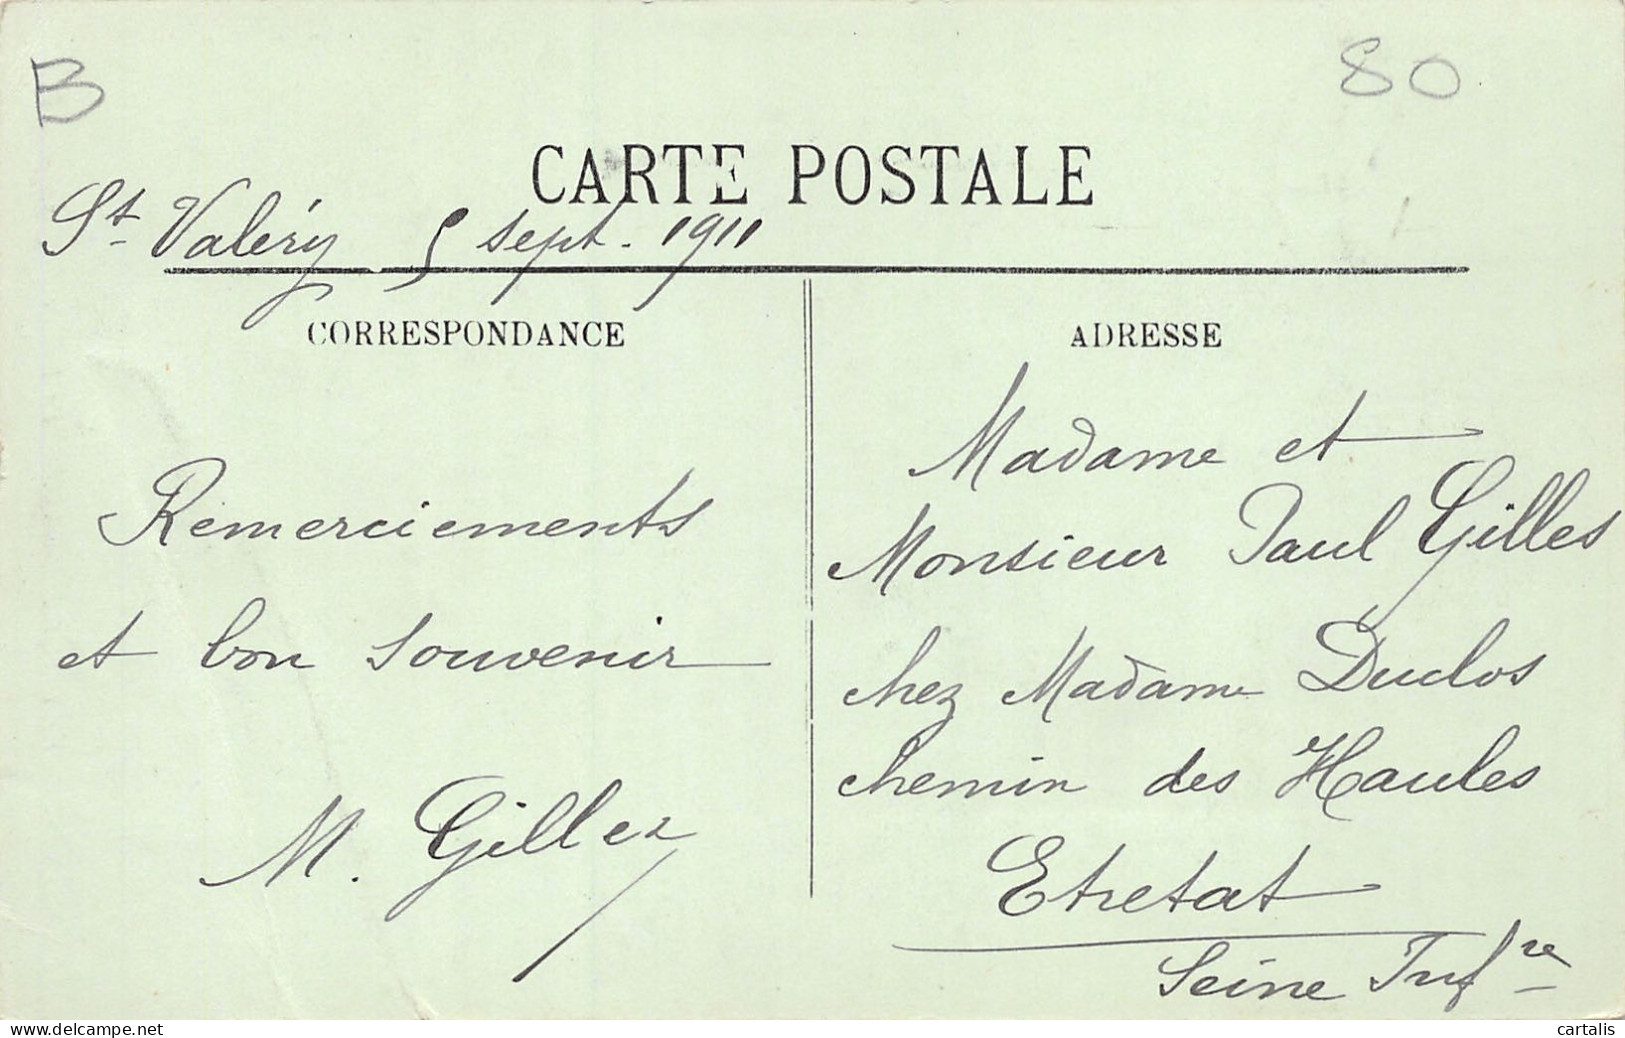 B
80
CARTE POSTALE
St Valéry 5 sept. 1911
CORRESPONDANCE
Remerciements
et bon souvenir
M. Gilles
ADRESSE
Madame et
Monsieur Paul Gilles
chez Madame Duclos
chemin des Haules
Etretat
Seine Infre
cartalis